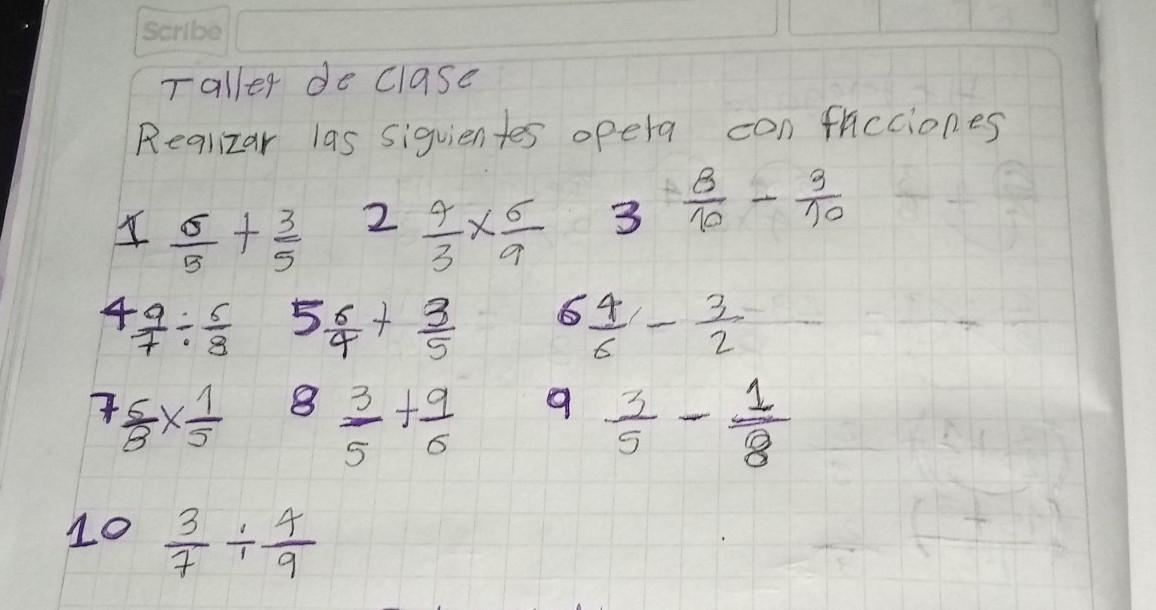 Scribe
Taller de clase
Realizar las siguientes opera con fracciones
1 6/5 + 3/5 2 4/3 × 6/9 3 8/10 - 3/10
4 9/7 ÷ 6/8 5 6/4 + 3/5 6 4/6 - 3/2
7 6/8 × 1/5 8 3/5 + 9/6 9 3/5 - 1/8
10 3/7 ÷ 4/9